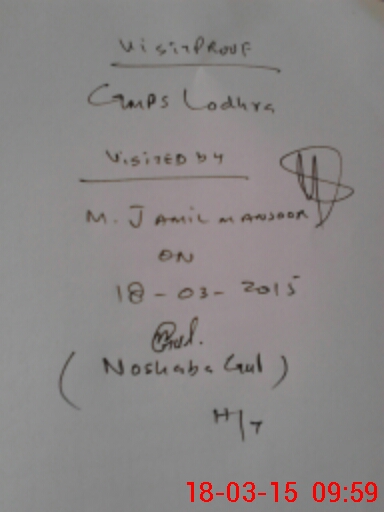 VISIT PROUF
GMPS Lodhra
VISITED BY
M. JAMIL MANSOOR
ON
18-03-2015
Gul.
(Noshaba Gul)
H/T
18-03-15 09:59